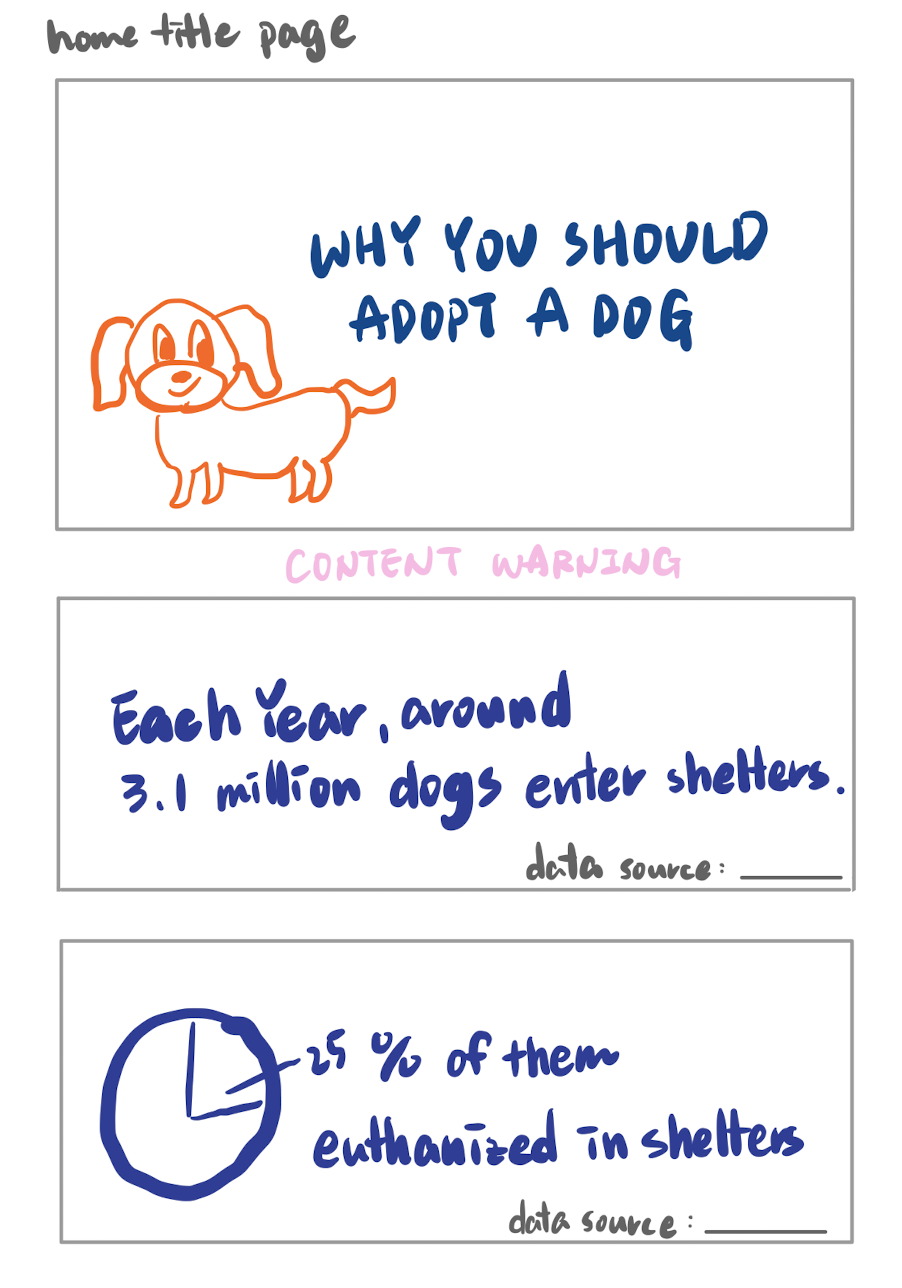 home title page
WHY YOU SHOULD
ADOPT A DOG
CONTENT WARNING
Each Year, around
3.1 million dogs enter shelters.
data source: ______
25 % of them
euthanized in shelters
data source: ______